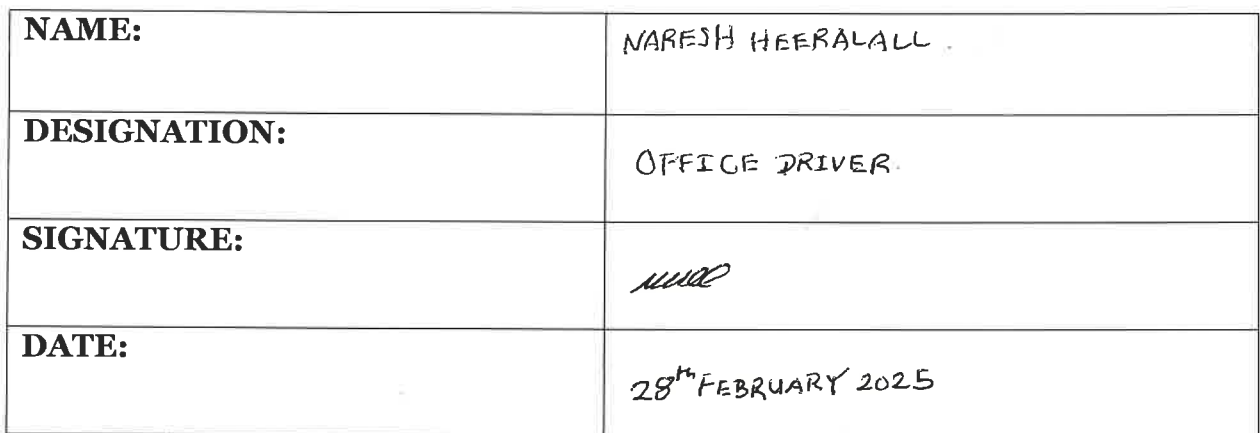 NAME:
NARESH HEERALALL.
DESIGNATION:
OFFICE DRIVER.
SIGNATURE:
DATE:
28th FEBRUARY 2025